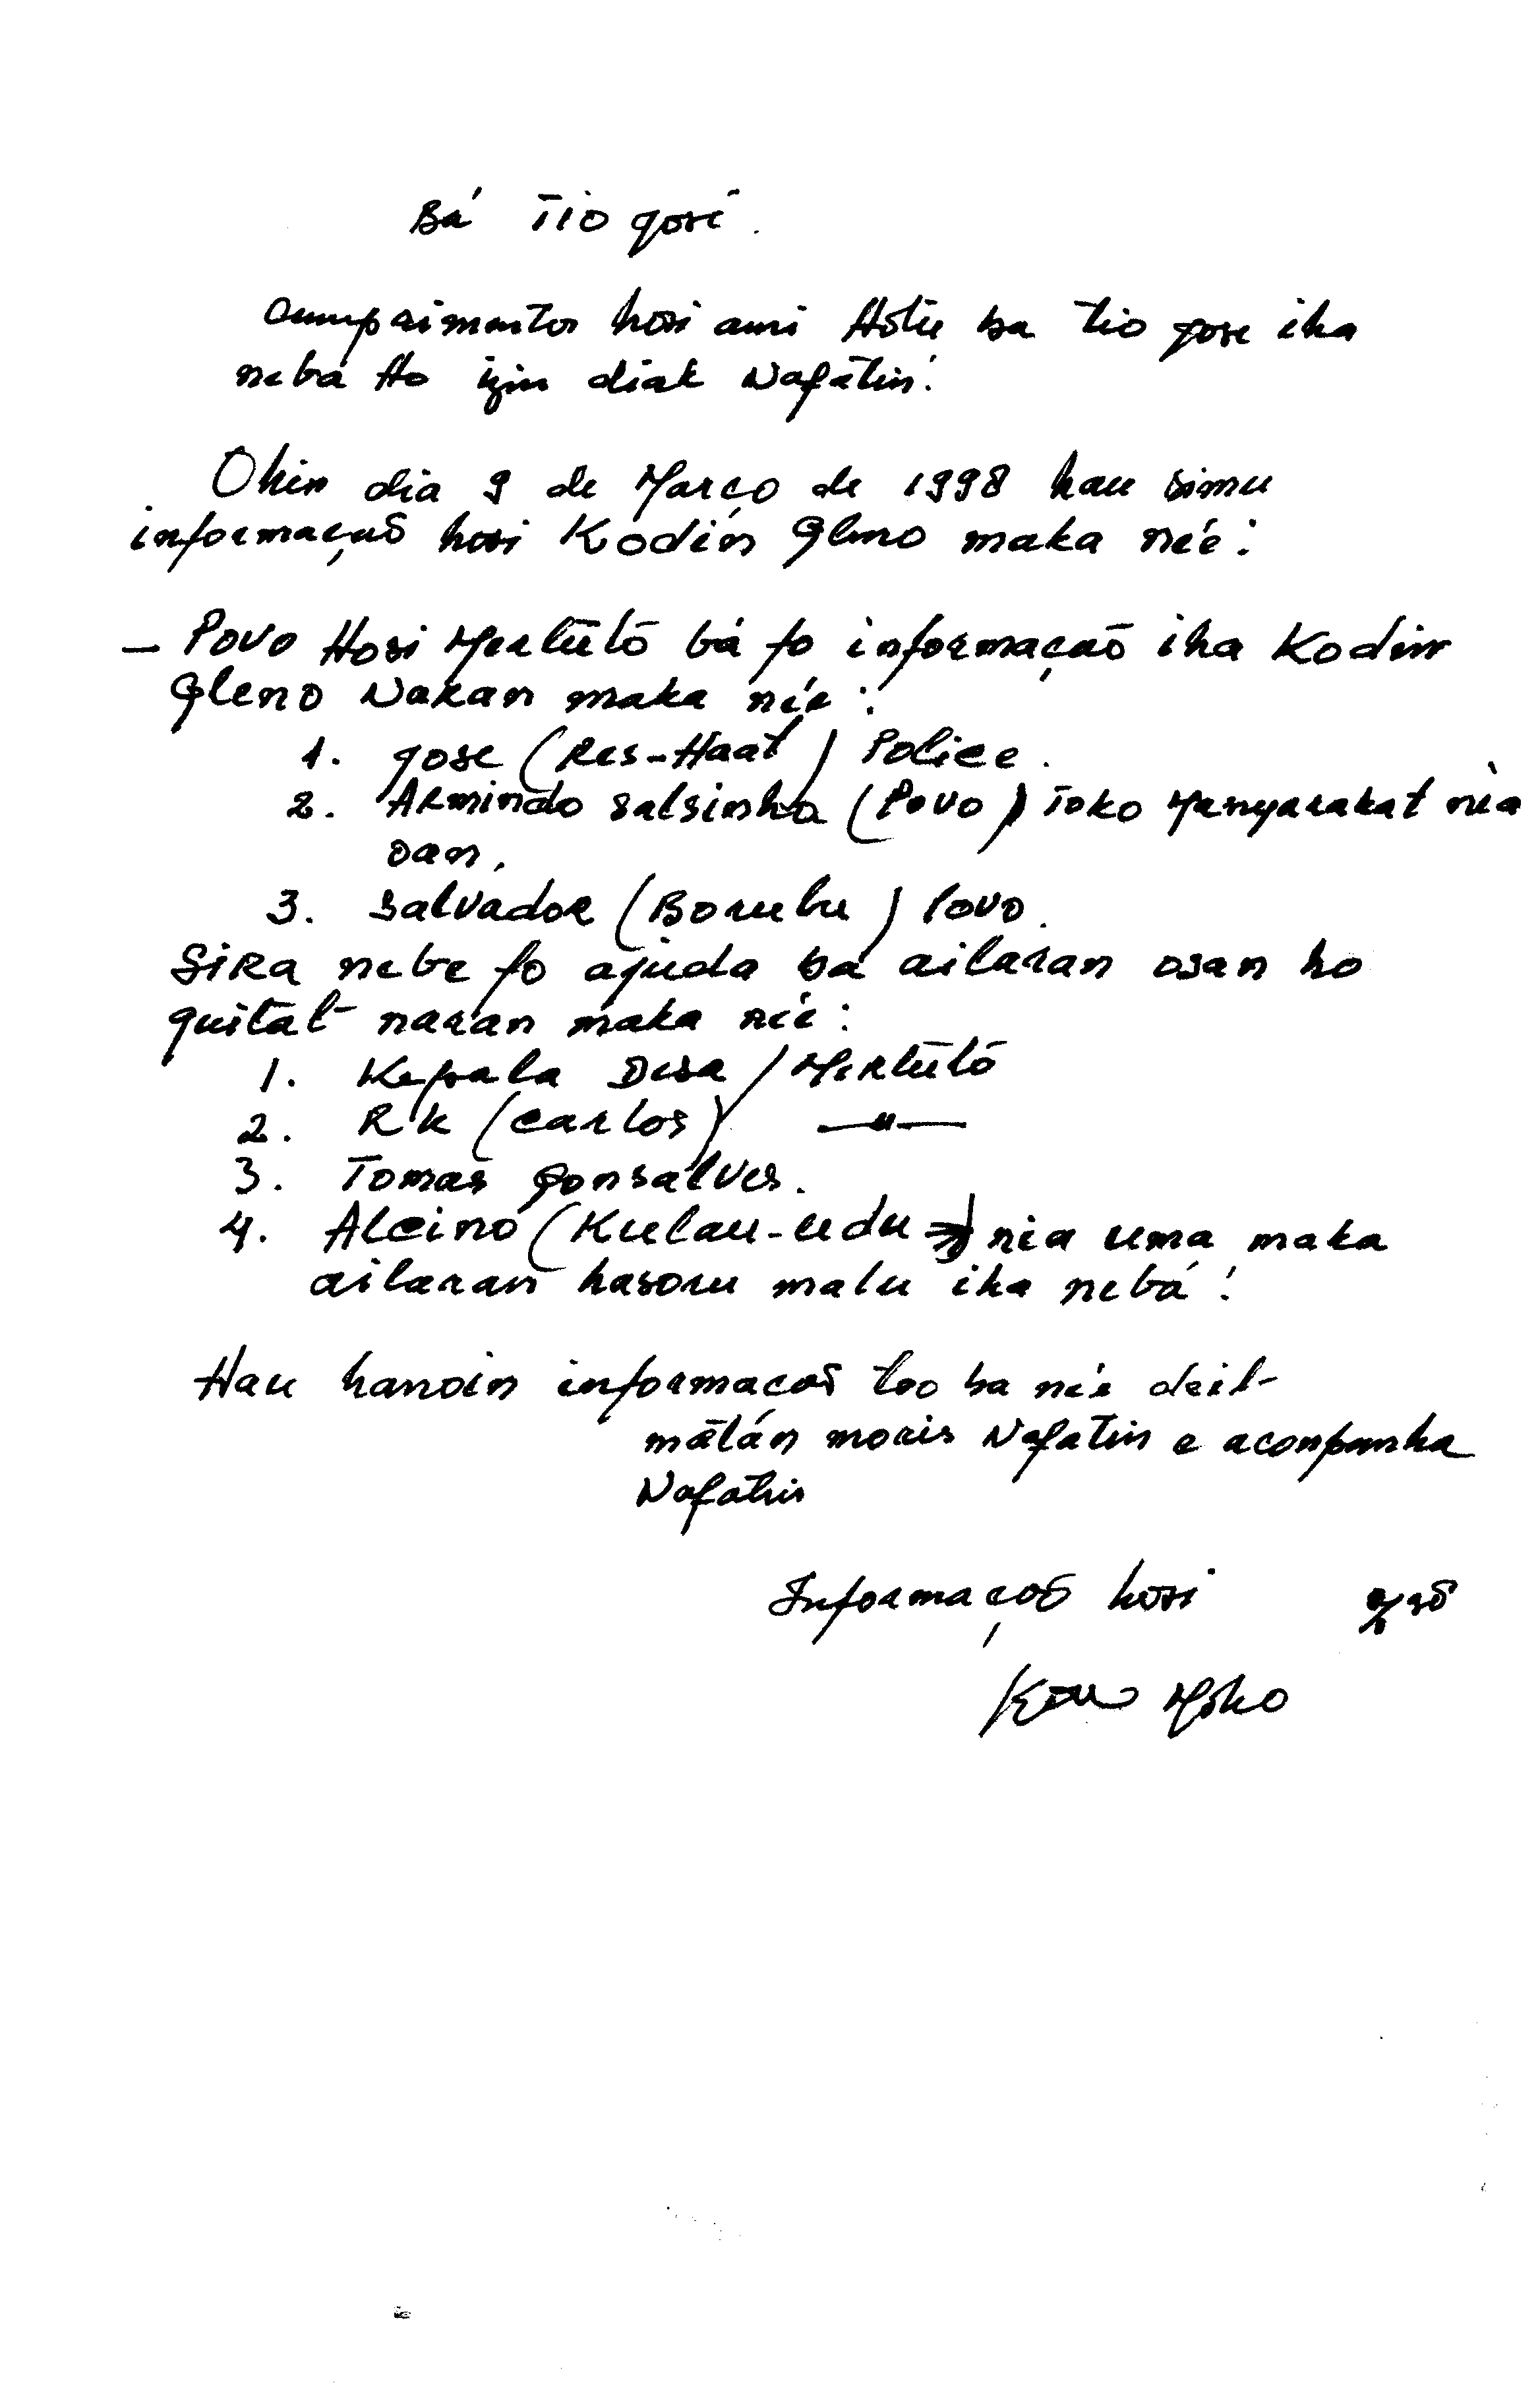 Bá Tio Jose.
Cumprimentos hosi ami Hotu ba tio Jose iha
nebá Ho izin diak Nafatin!
Ohin dia 9 de Março de 1998 hau simu
informaçaõ hosi Kodin Gleno maka né'e:
- Povo Hosi Mertútó bá fo informaçaõ iha Kodim
Gleno Naran maka né'e:
1. Jose (Res-Haat) Police.
2. Armindo Salsinha (Povo) Toko Masyarakat nia
oan.
3. Salvador (Borulu) Povo.
Sira nebe fo ajuda bá ailaran osan ho
quitat naran maka né'e:
1. Kepala Desa / Mertútó
2. RK (Carlos) —"—
3. Tomas Gonsalves.
4. Alcino (Kulau-udu → nia uma maka
ailaran hasoru malu iha nebá!
Hau hanoin informacaõ too ba né'e deit
mátán moris Nafatin e aconpanha
Nafatin
Informaçoõ hosi